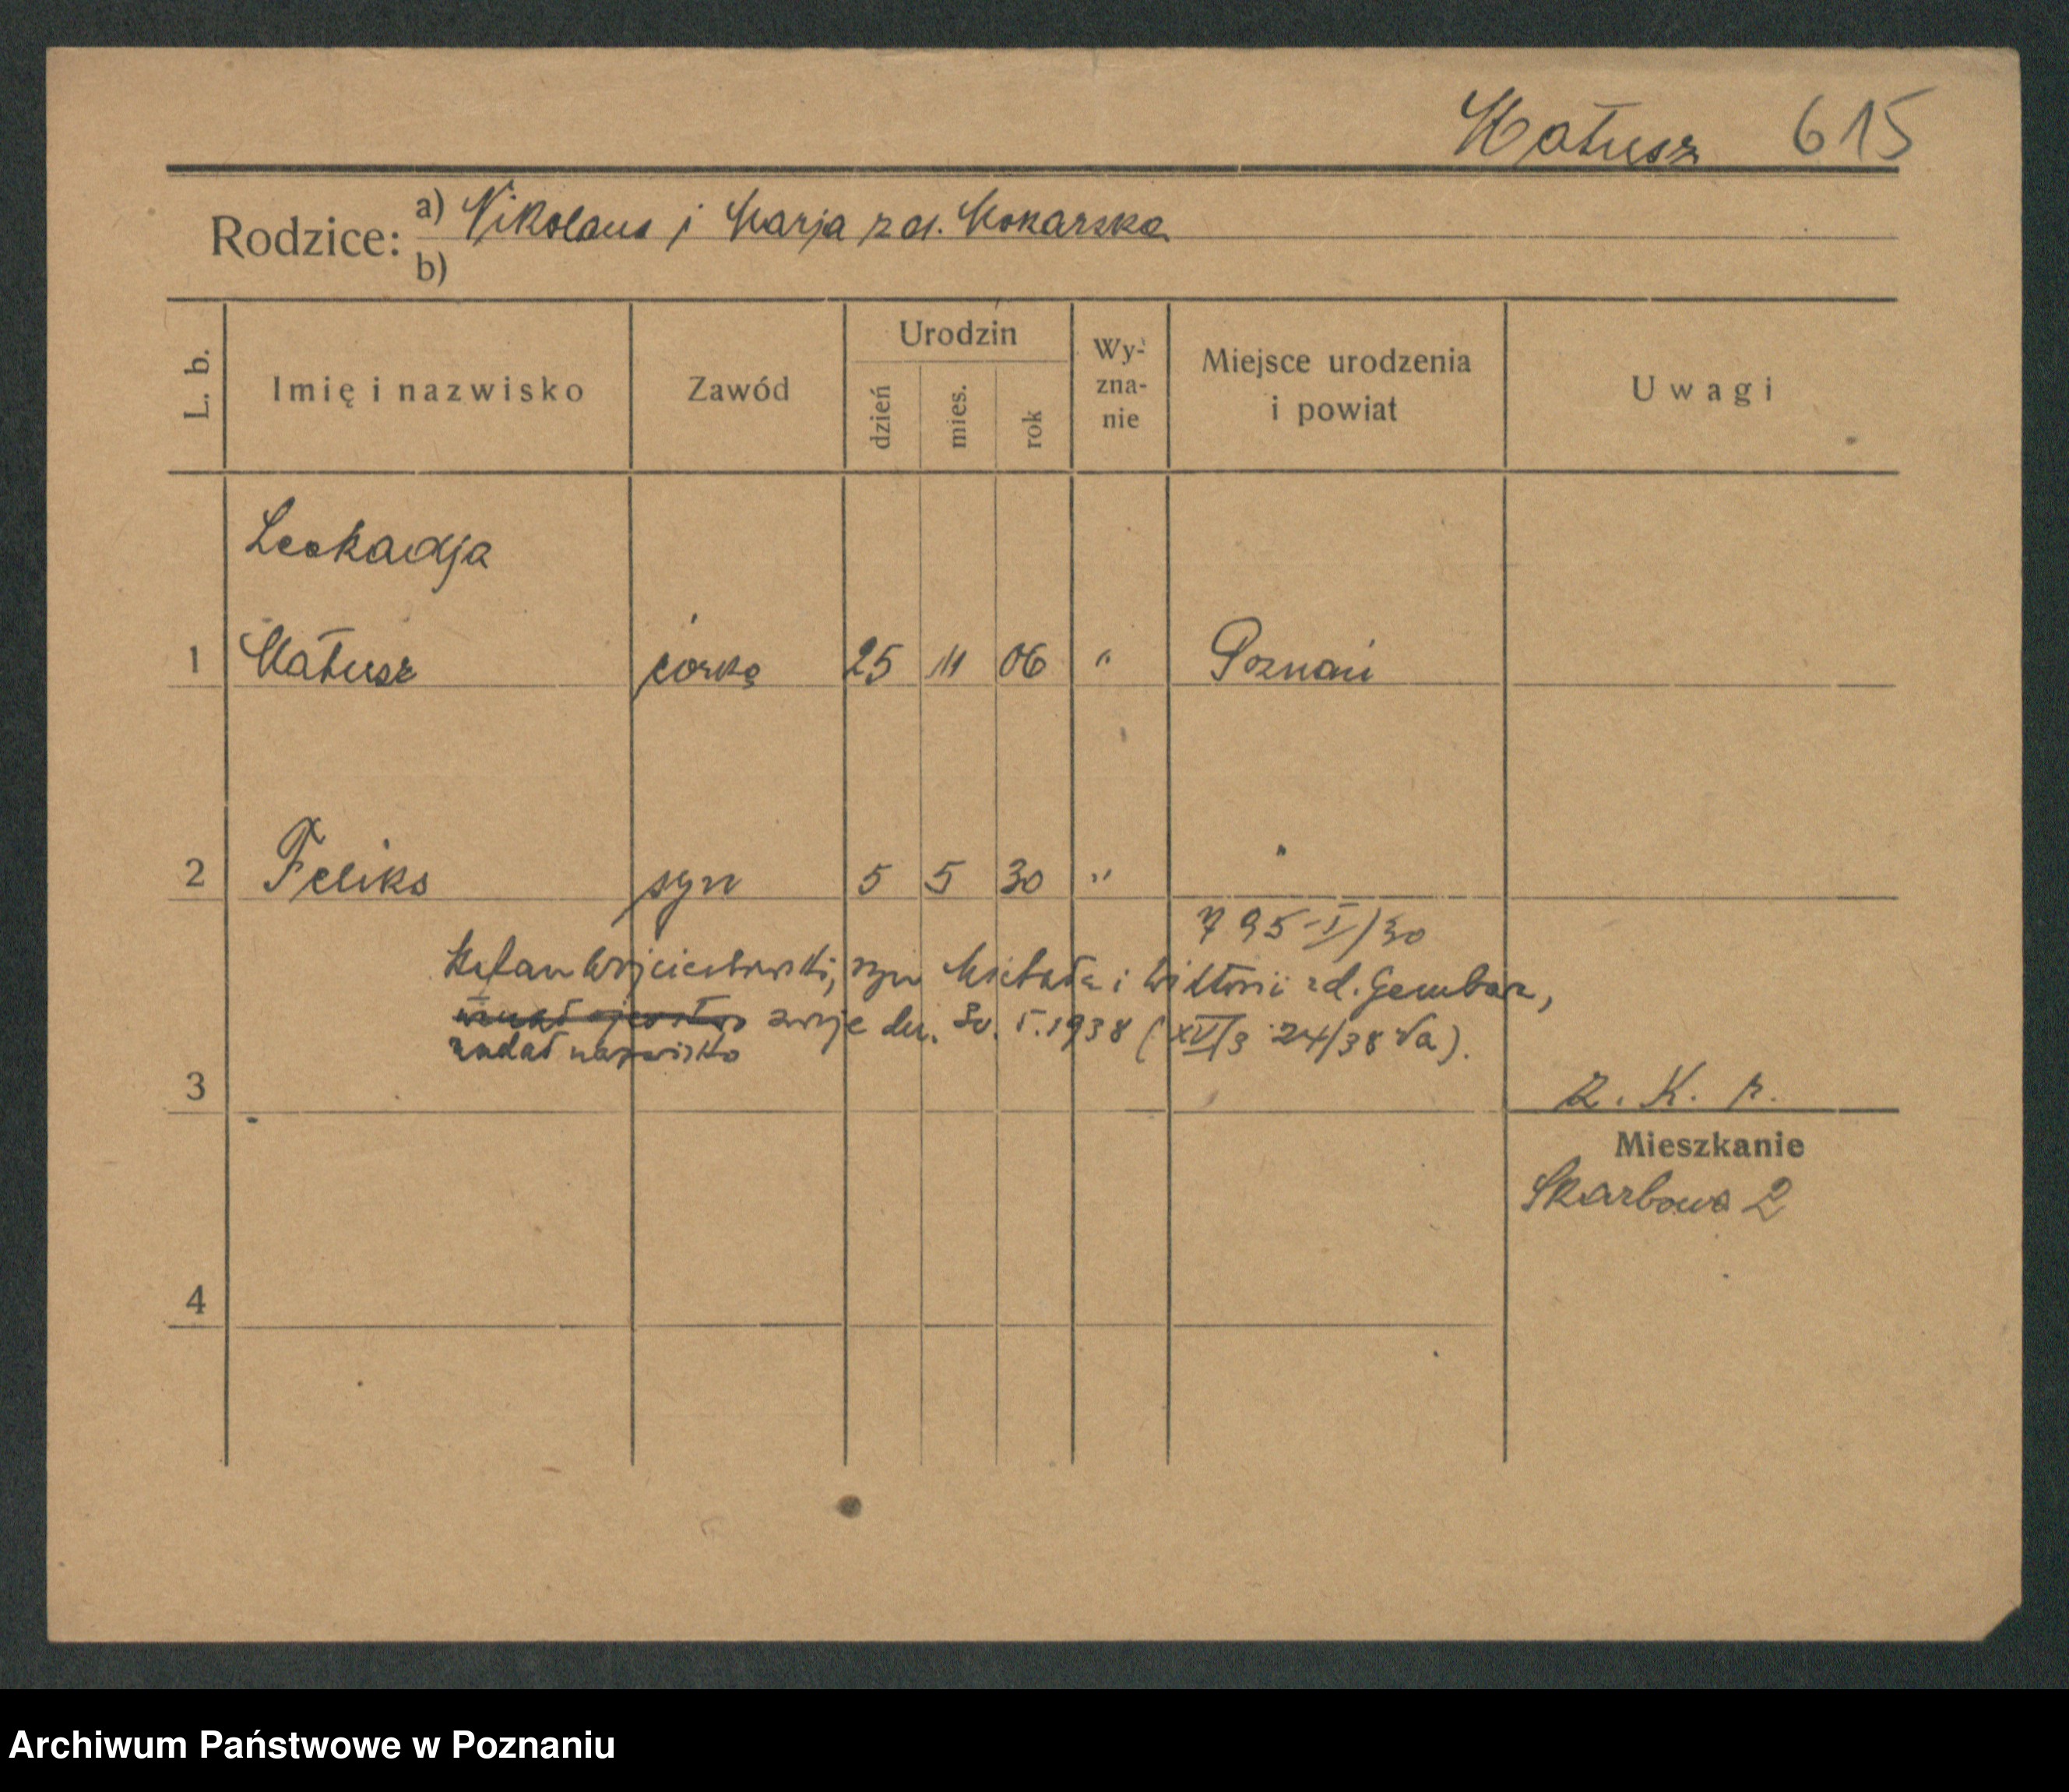 Matusz 615
Rodzice: a) Nikolaus i Marja zd. Mokarska
b)
L. b. Imię i nazwisko Zawód Urodzin dzień mies. rok Wy-zna-nie Miejsce urodzenia i powiat Uwagi
Leokadja
1 Matusz córka 25 11 06 " Poznań
2 Feliks syn 5 5 30 " "
795-I/30
Stefan Wojciechowski, syn Michała i Wiktorii zd. Gembiar,
swoje dn. 30. 5. 1938 (XVI/3 24/38 Va).
nadał nazwisko
3 R. K. P.
Mieszkanie
Skarbowa 2
4
Archiwum Państwowe w Poznaniu